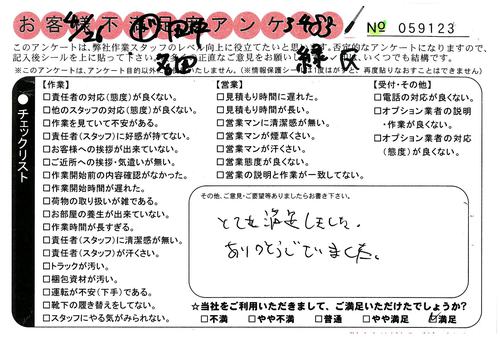 お客様不満足度アンケ
№ 059123
このアンケートは、弊社作業スタッフのレベル向上に役立てたいと思
否定的なアンケートになりますので、
記入後シールを上に貼って下さ
正直なご意見をお願い
いつでも結構です。
【作業】
□責任者の対応(態度)が良くない。
□他のスタッフの対応(態度)が良くない。
□作業を見ていて不安がある。
□責任者(スタッフ)に好感が持てない。
□お客様への挨拶が出来ていない。
□ご近所への挨拶・気遣いが無い。
□作業開始前の内容確認がなかった。
□作業開始時間が遅れた。
□荷物の取り扱いが雑である。
□お部屋の養生が出来ていない。
□作業時間が長すぎる。
□責任者(スタッフ)に清潔感が無い。
□責任者(スタッフ)が汗くさい。
□トラックが汚い。
□梱包資材が汚い。
□運転が不安(下手)である。
□靴下の履き替えをしてない。
□スタッフにやる気がみられない。
【営業】
□見積もり時間に遅れた。
□見積もり時間が長い。
□営業マンに清潔感が無い。
□営業マンが煙草くさい。
□営業マンが汗くさい。
□営業態度が良くない。
□営業の説明と作業が一致してない。
【受付・その他】
□電話の対応が良くない。
□オプション業者の説明
・作業が良くない。
□オプション業者の対応
(態度)が良くない。
●チェックリスト
その他、ご意見・ご要望等ありましたらお書き下さい。
とても満足しました。
ありがとうございました。
☆当社をご利用いただきまして、ご満足いただけたでしょうか？
□不満 □やや不満 □普通 □やや満足 □満足